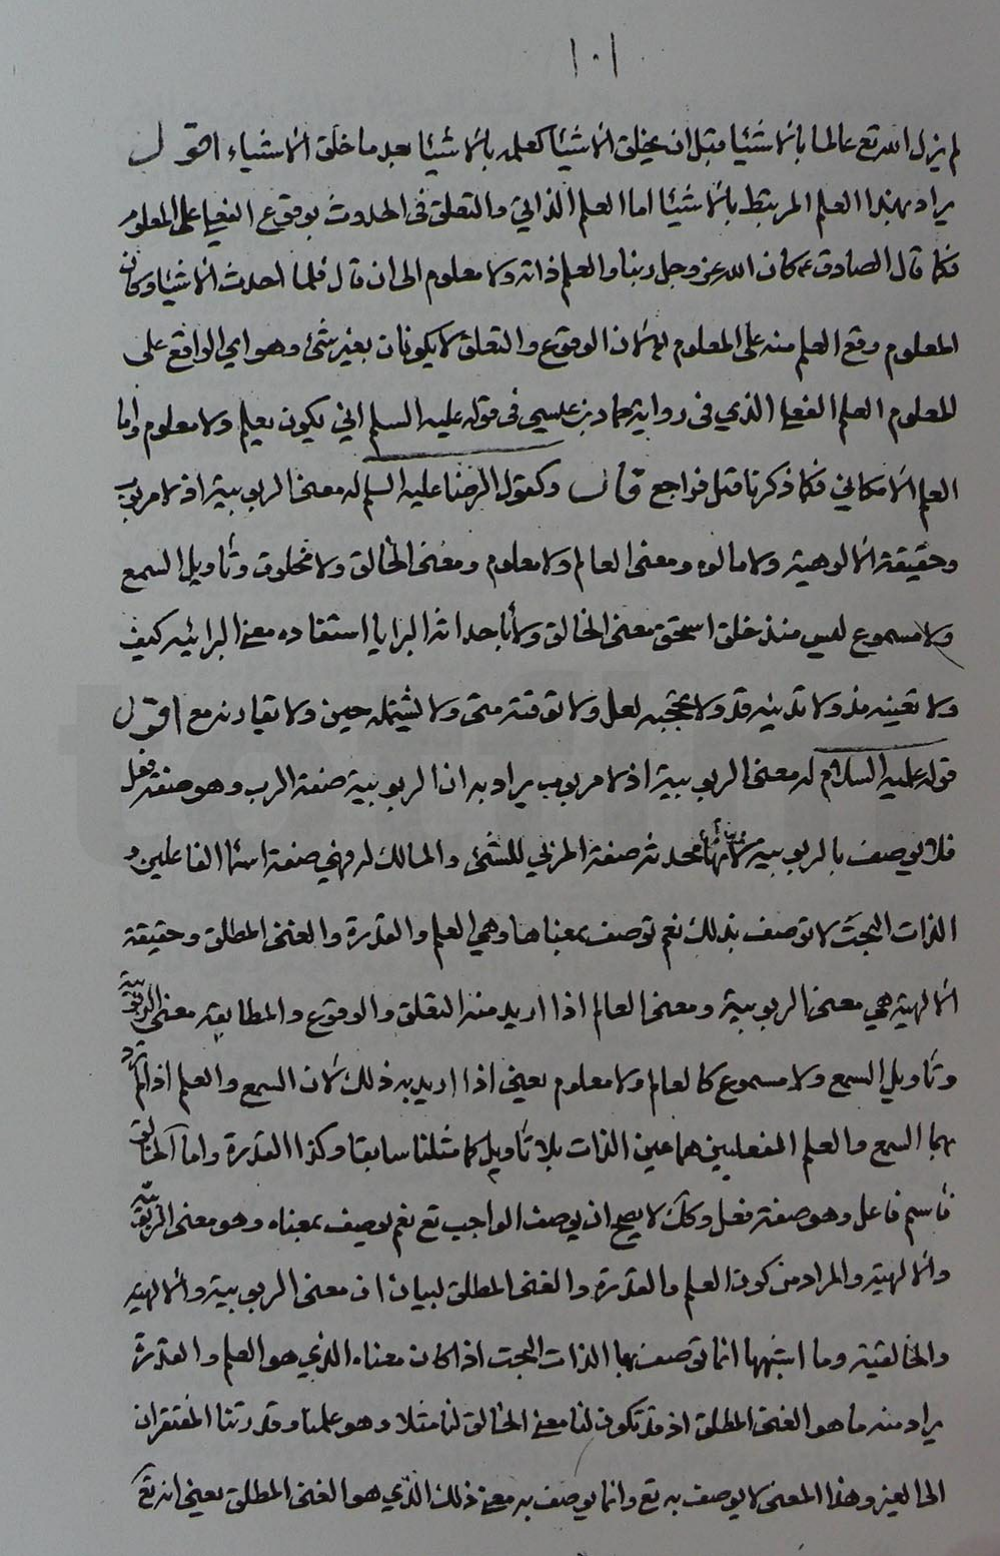 ١٠١
لم يزل الله تع عالما بالاشيا قبل ان يخلق الاشيا كعلمه بالاشيا بعد ما خلق الاشياء اقول
يراد بهذا العلم المرتبط بالاشيا اما العلم الذاتي والتعلق فى الحدوث بوقوع الفعلي على المعلوم
فكما قال الصادق ع كان الله عز وجل ربنا والعلم ذاته ولا معلوم الى ان قال فلما احدث الاشيا وكان
المعلوم وقع العلم منه على المعلوم لان الوقوع والتعلق لا يكونان بغير شئ وهو اي الواقع على
المعلوم العلم الفعلي الذي فى رواية حماد بن عيسى فى قوله عليه السلم اني يكون يعلم ولا معلوم واما
العلم الامكاني فكما ذكرنا قبل فراجع قال وكقول الرضا عليه السلم له معنى الربوبية اذ لا مربوب
وحقيقة الالوهية ولا مالوه ومعنى العالم ولا معلوم ومعنى الخالق ولا مخلوق وتأويل السمع
ولا مسموع ليس منذ خلق استحق معنى الخالق ولا باحداثه البرايا استفاد معنى البرائية كيف
ولا تعينه مذ ولا تدنيه قد ولا يحجبه لعل ولا توقته متى ولا تشتمله حين ولا تقارنه مع اقول
قوله عليه السلام له معنى الربوبية اذ لا مربوب يراد به ان الربوبية صفة الرب وهو صفة فعل
فلا يوصف بالربوبية لانها محدثة صفة المربي للشئ والمالك له فهي صفة اسما الفاعلين و
الذات البحت لا توصف بذلك نعم توصف بمعناها وهي العلم والقدرة والغنى المطلق وحقيقة
الالهية هي معنى الربوبية ومعنى العالم اذا اريد منه التعلق والوقوع والمطابقة معنى الربوبية
وتأويل السمع ولا مسموع كالعالم ولا معلوم يعني اذا اريد به ذلك لان السمع والعلم اذا لم يرد
بهما السمع والعلم الفعليين هما عين الذات بلا تأويل كما مثلنا سابقا وكذا القدرة واما الخالق
فأسم فاعل وهو صفة فعل وكك لا يصح ان يوصف الواجب تع نعم يوصف بمعناه وهو معنى الربوبية
والالهية والمراد من كون العلم والقدرة والغنى المطلق لبيان ان معنى الربوبية والالهية
والخالقية وما اشبهها انما توصف بها الذات البحت اذا كان معناه الذي هو العلم والقدرة
يراد منه ما هو الغنى المطلق اذ قد تكون لنا معنى الخالق لنا مثلا وهو علمنا وقدرتنا المفتقران
الى الغير وهذا المعنى لا يوصف به تع وانما يوصف به معنى ذلك الذي هو الغنى المطلق يعني انه تع